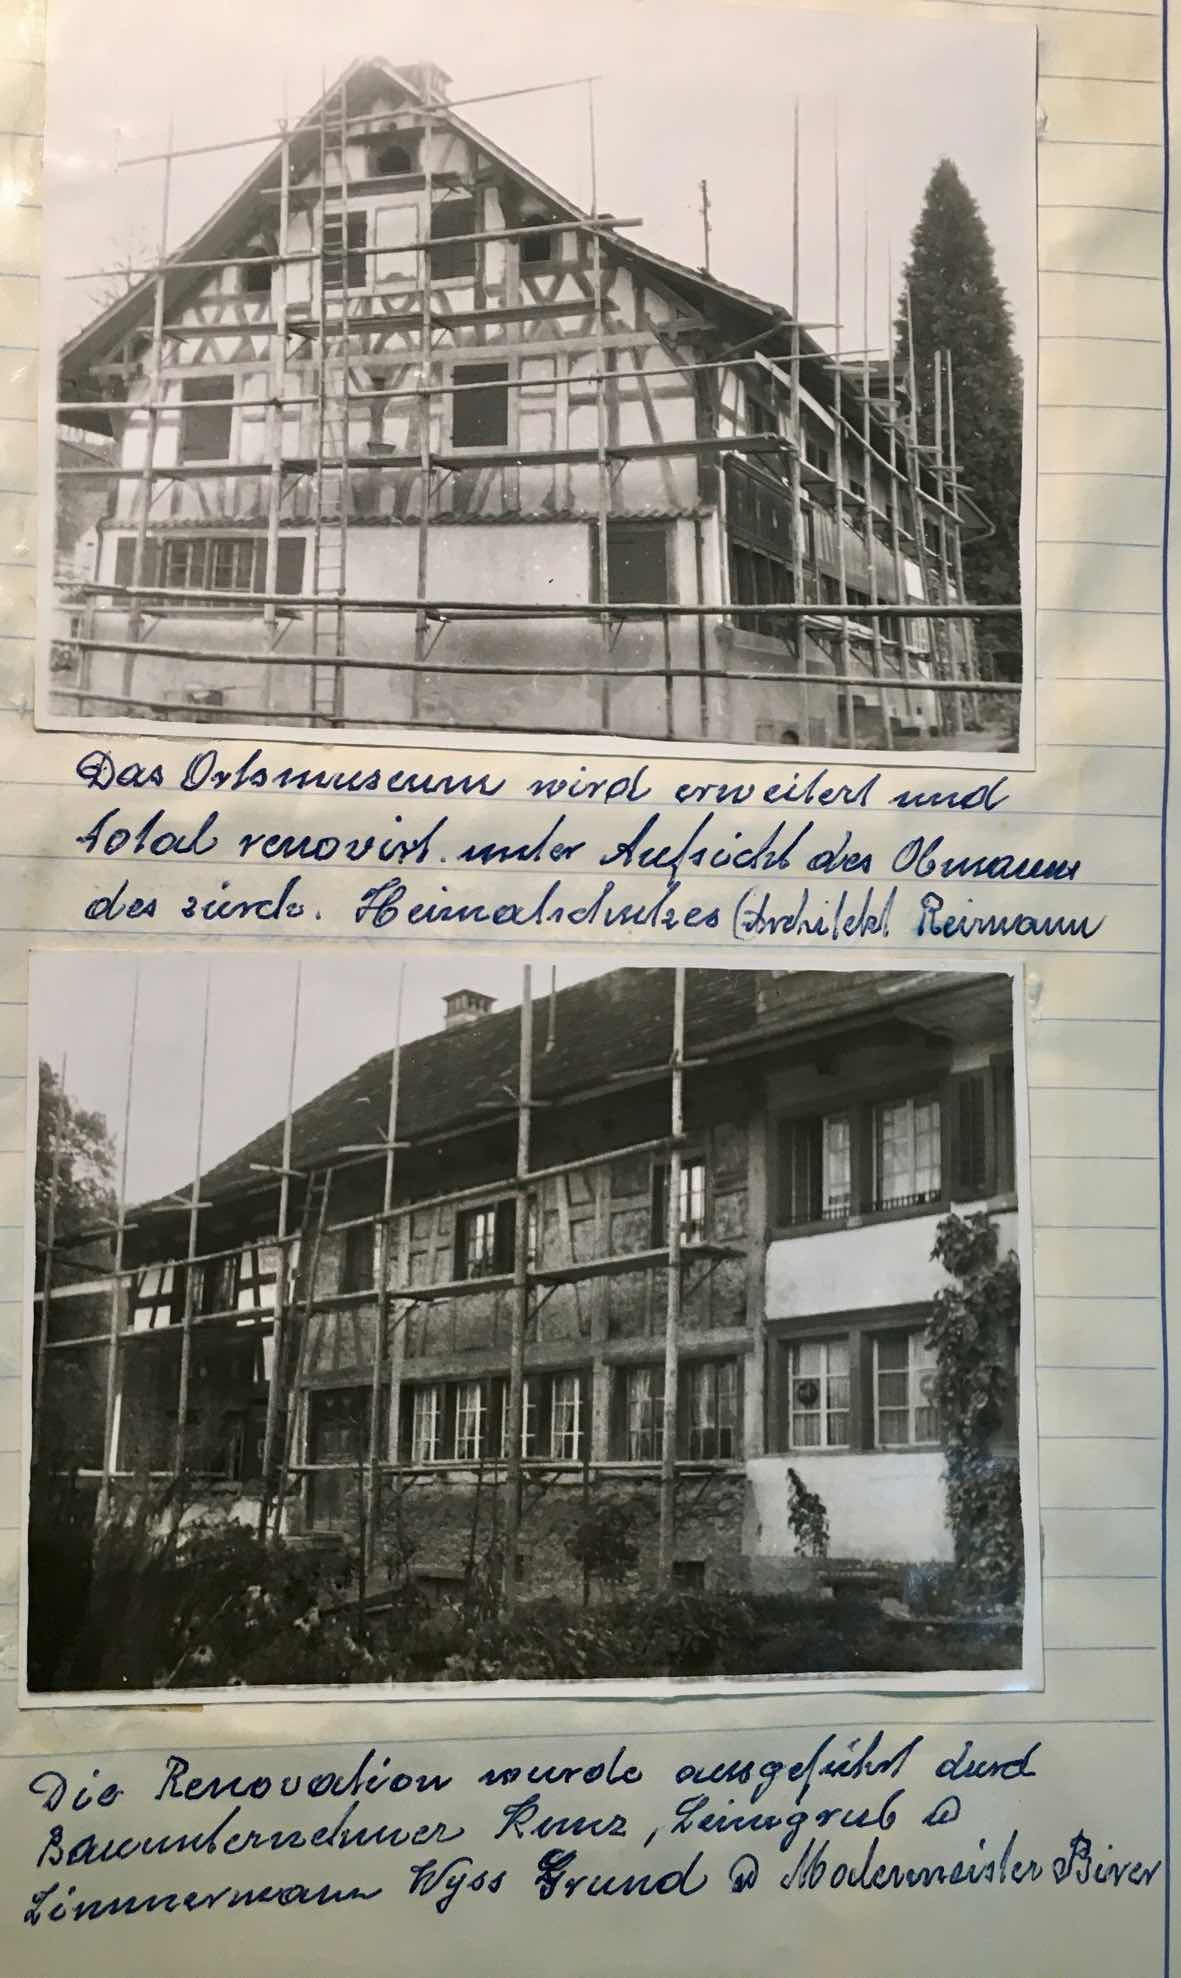 Das Ortsmuseum wird erweitert und
total renovirt. unter Aufsicht des Obmanns
des zürch. Heimatschutzes (Architekt Reimann
Die Renovation wurde ausgeführt durch
Bauunternehmer Kunz, Leimgrub &
Zimmermann Wyss Grund & Malermeister Birer